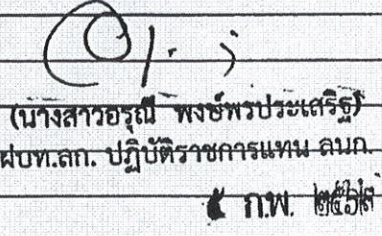 (นางสาวอรุณี พงษ์พรประเสริฐ)
ฝบท.ลก. ปฏิบัติราชการแทน ลนก.
๕ ก.พ. ๒๕๖๗